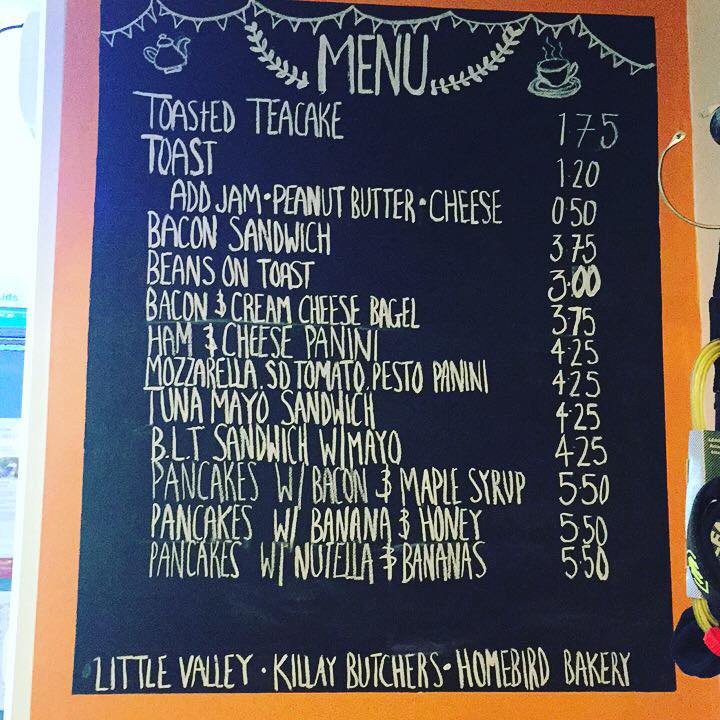 MENU
TOASTED TEACAKE 1 75
TOAST 1·20
ADD JAM·PEANUT BUTTER·CHEESE 0 50
BACON SANDWICH 3 75
BEANS ON TOAST 3·00
BACON & CREAM CHEESE BAGEL 3 75
HAM & CHEESE PANINI 4·25
MOZZARELLA, SD TOMATO, PESTO PANINI 4·25
TUNA MAYO SANDWICH 4·25
B.L.T SANDWICH W/MAYO 4·25
PANCAKES W/ BACON & MAPLE SYRUP 5 50
PANCAKES W/ BANANA & HONEY 5·50
PANCAKES W/ NUTELLA & BANANAS 5·50
LITTLE VALLEY · KILLAY BUTCHERS · HOMEBIRD BAKERY